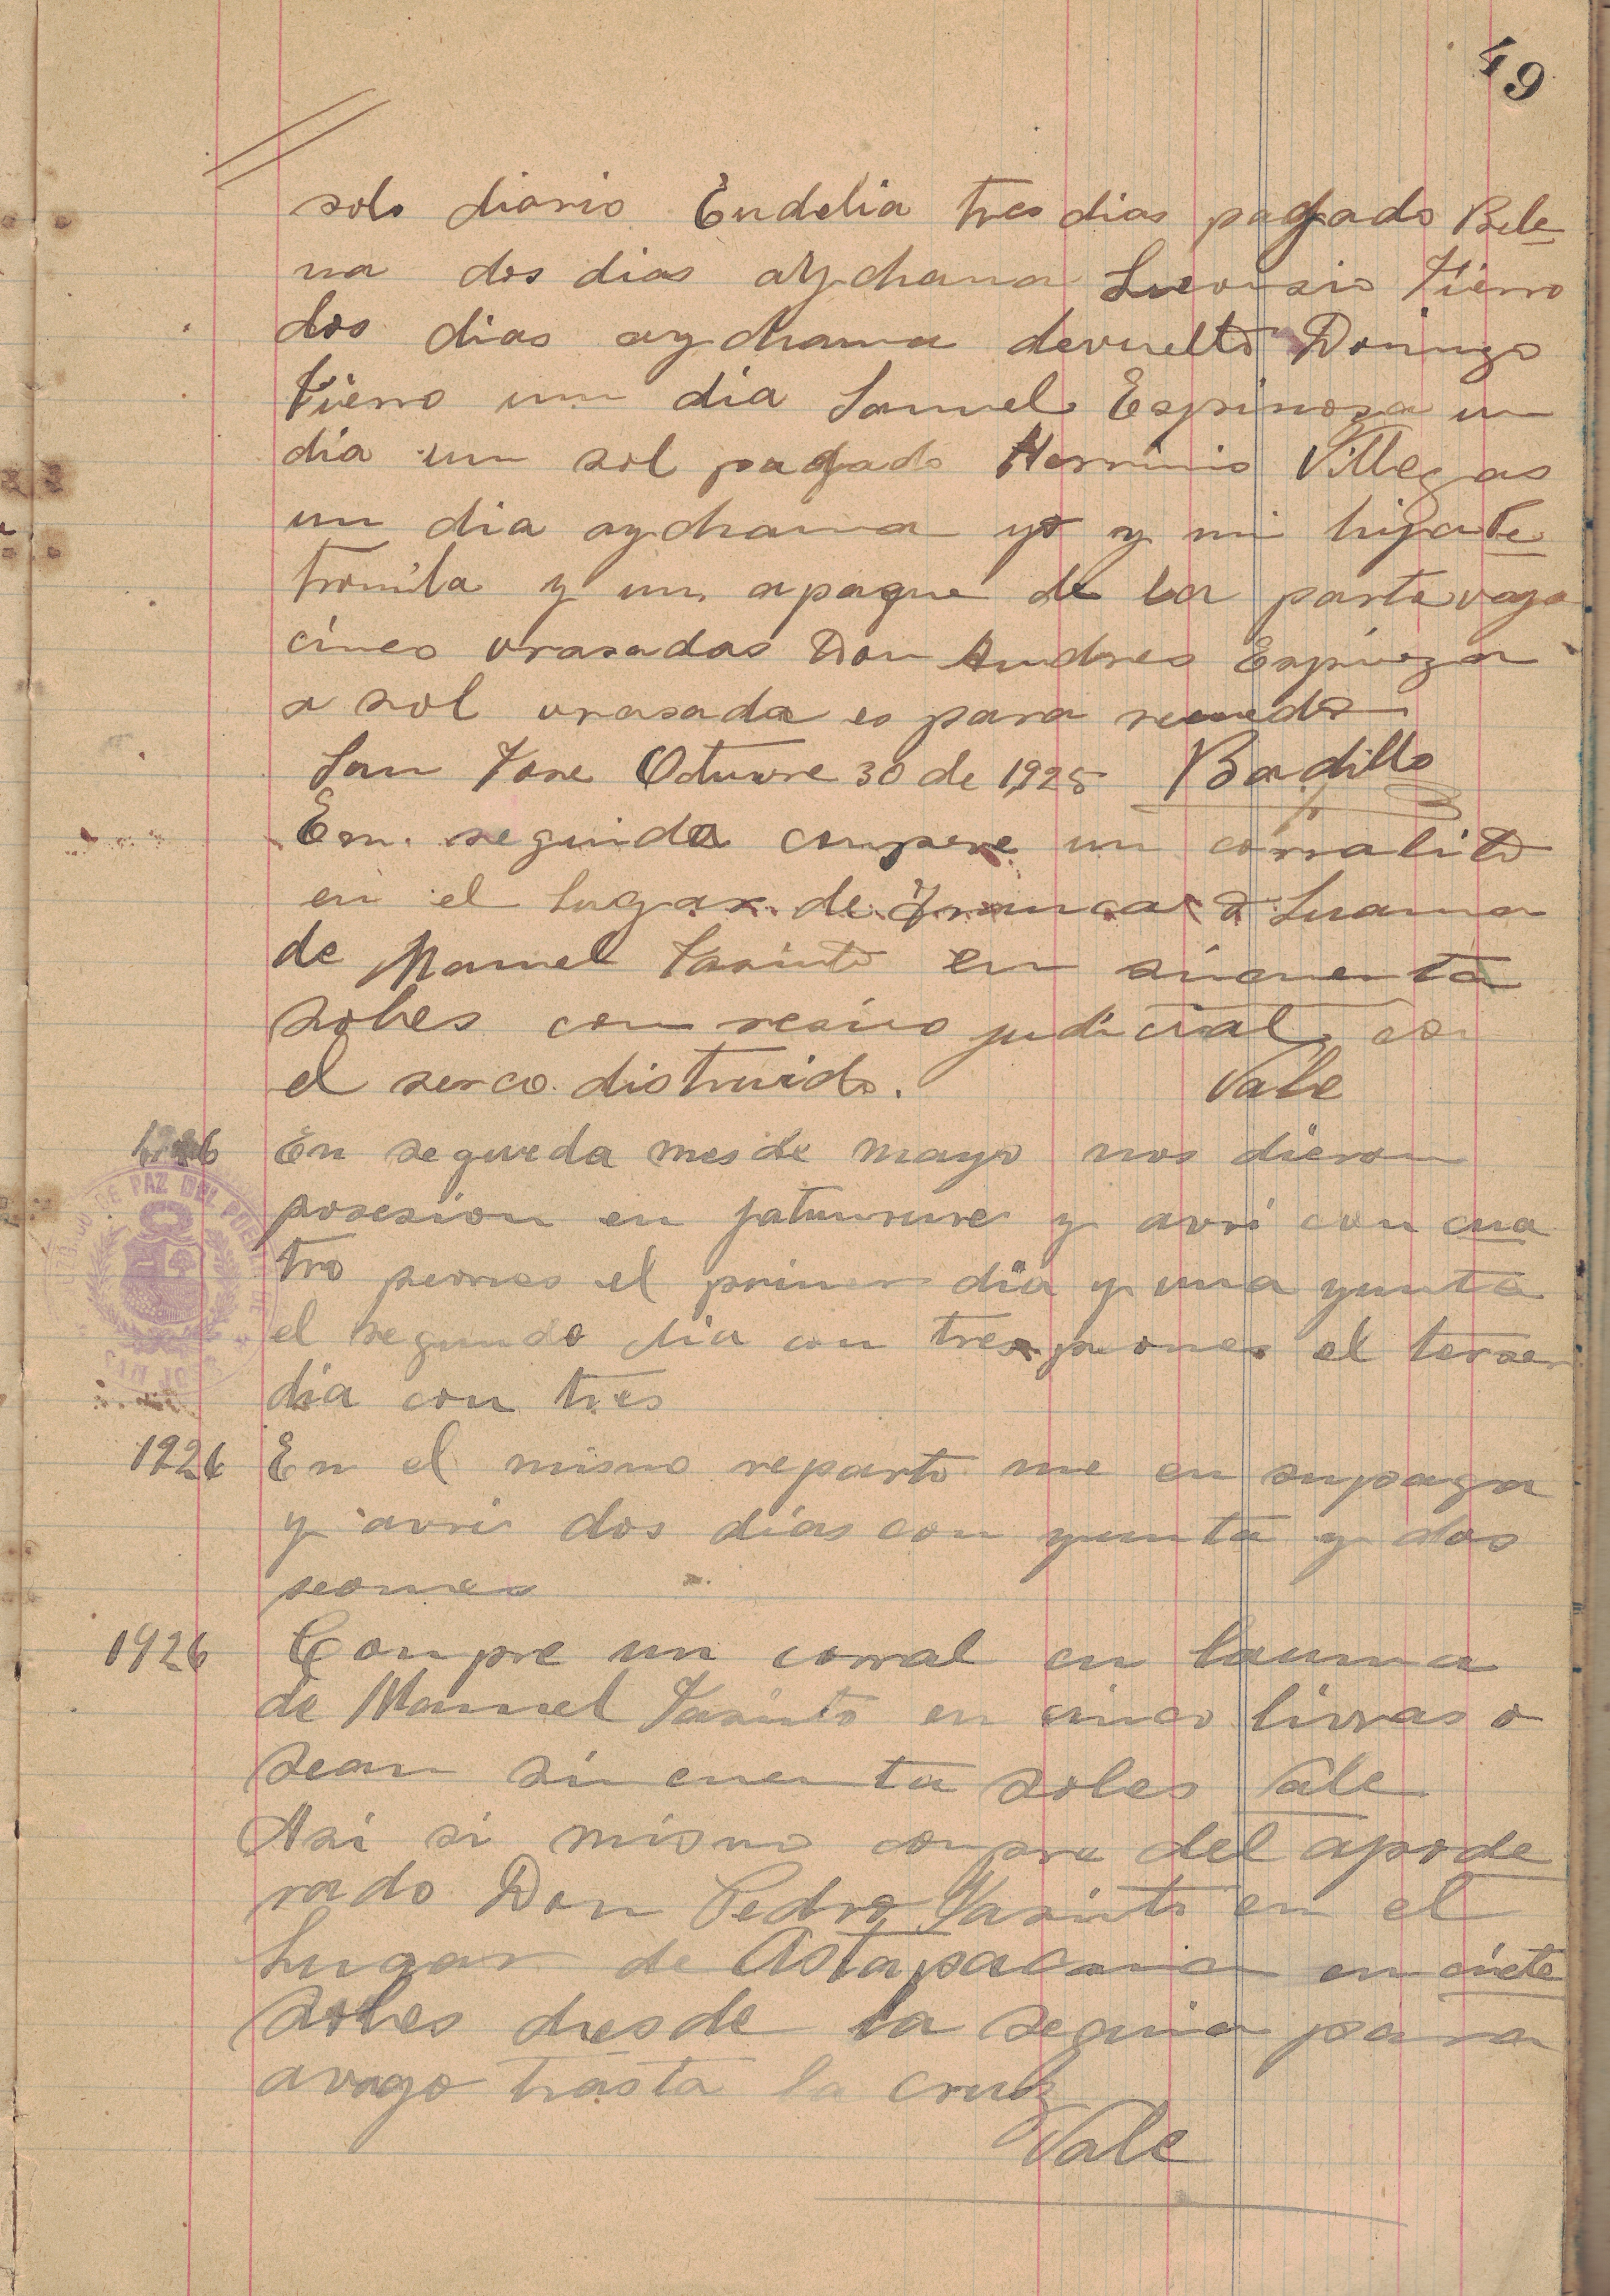 49
solo diario Endelia tres dias pagado Bele
na dos dias aychama Fierro
dos dias aychama devuelto Domingo
Fierro un dia Samuel Espinoza un
dia un sol pagado Herminio Villegas
un dia aychama yo y mi hija Pe
tronila y un apaque de la parte vajo
cinco vrasadas Don Andres Espinoza
a sol vrasada es para recuerdo
San Jose Otuvre 30 de 1925 Badillo
En seguida compre un corralito
en el lugar de Luama
de Manuel Jasinto en sincuenta
soles con resivo judicial con
el serco distruido. Vale
1926 En seguida mes de mayo nos dieron
posesion en jatunrure y avri con cua
tro peones el primer dia y una yunta
el segundo dia con tres peones el terser
dia con tres
JUZGADO DE PAZ DEL
1926 En el mismo reparto me en supaga
y avri dos dias con yunta y dos
peones
1926 Compre un corral en
de Manuel Jasinto en cinco livras o
sean sincuenta soles Vale
Asi si mismo compre del apode
rado Don Pedro Jasinto en el
Lugar de Astapacana en ciete
soles desde la sequia para
avago hasta la cruz
Vale